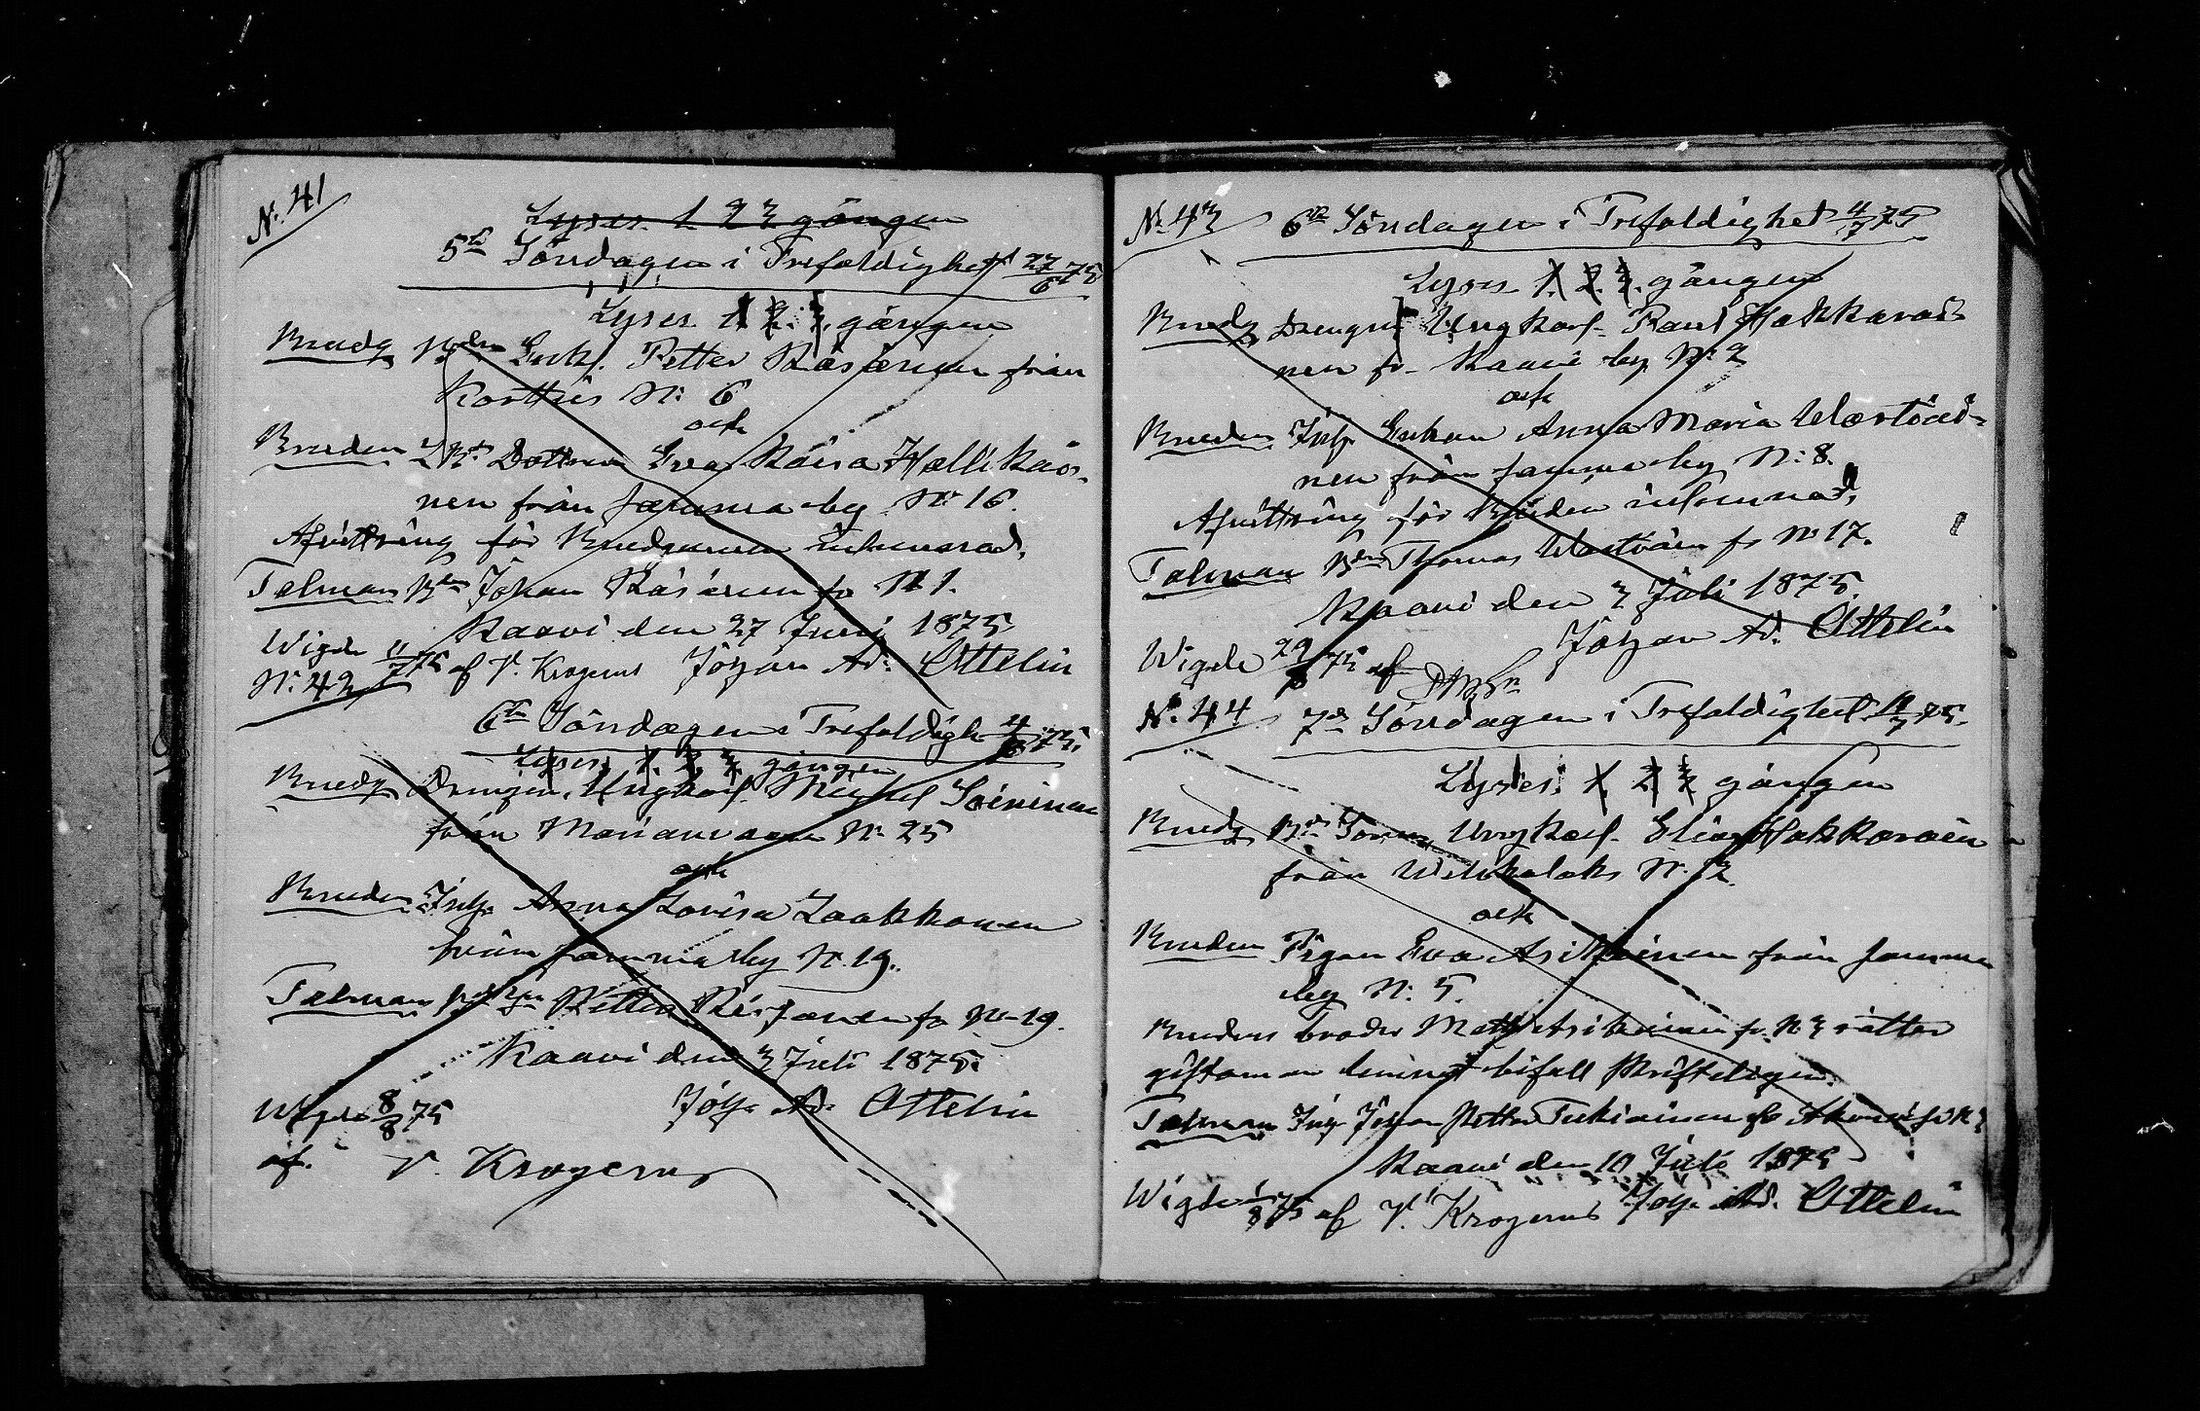 N: 41
Lyses 1 2 3 gången
5te Söndagen i Trefaldighet 27/6 75
Lyses 1. 2. 3. gången
Brudg Bden Enkl. Petter Räsänen från
Kortteis N: 6
och
Bruden Dottren Eva Kaisa Hallikai-
nen från samma by N: 16.
Afvittring för Brudgummen inlemnad.
Talman Bden Johan Räsänen fr N 1.
Kaavi den 27 Juni 1875
Wigde 11/7 75 af V. Krogerus Johan Ad. Ottelin
N: 42
6te Söndagen i Trefaldigh 4/ 75.
Lyses 1. 2. 3. gången
Brudg Drängen, Ungkarl Michel Soininen
från Marianvaara N: 25
och
Bruden Inh. Anna Lovisa Laakkonen
från samma by N. 19.
Talman Petter fr N 19.
Kaavi den 3 Juli 1875.
Wigde 8/8 75
Joh. Ad. Ottelin
af. V. Krogerus
N: 43 6te Söndagen i Trefaldighet 4/7 75
Lyses 1. 2. 3. gången
Brudg Drengen Ungkarl Paul Hakkarai-
nen fr Kaavi by N: 2
och
Bruden Inh. Enkan Anna Maria Wartiai-
nen från samma by N: 8.
Afvittring för Bruden inlemnad,
Talman Bden Thomas Wartiain fr N 17.
Kaavi den 3 Juli 1875.
Johan Ad. Ottelin
Wigde 29/8 75 af
N: 44 7de Söndagen i Trefaldighet 11/7 75.
Lyses 1 2 3 gången
Brudg Bde Sonen Ungkarl Elias Hakkarainen
från N. 2.
och
Bruden Pigan Eva Asikainen från samma
by N: 5.
Brudens broder Matts Asikainen fr. N 3 rätter
giftoman lemnat bifall skrifteligen.
Talman Inh Johan Petter Tukiainen fr
Kaavi den 10 Juli 1875
Wigde 1/8 75 af V. Krogerus Joh. Ad. Ottelin